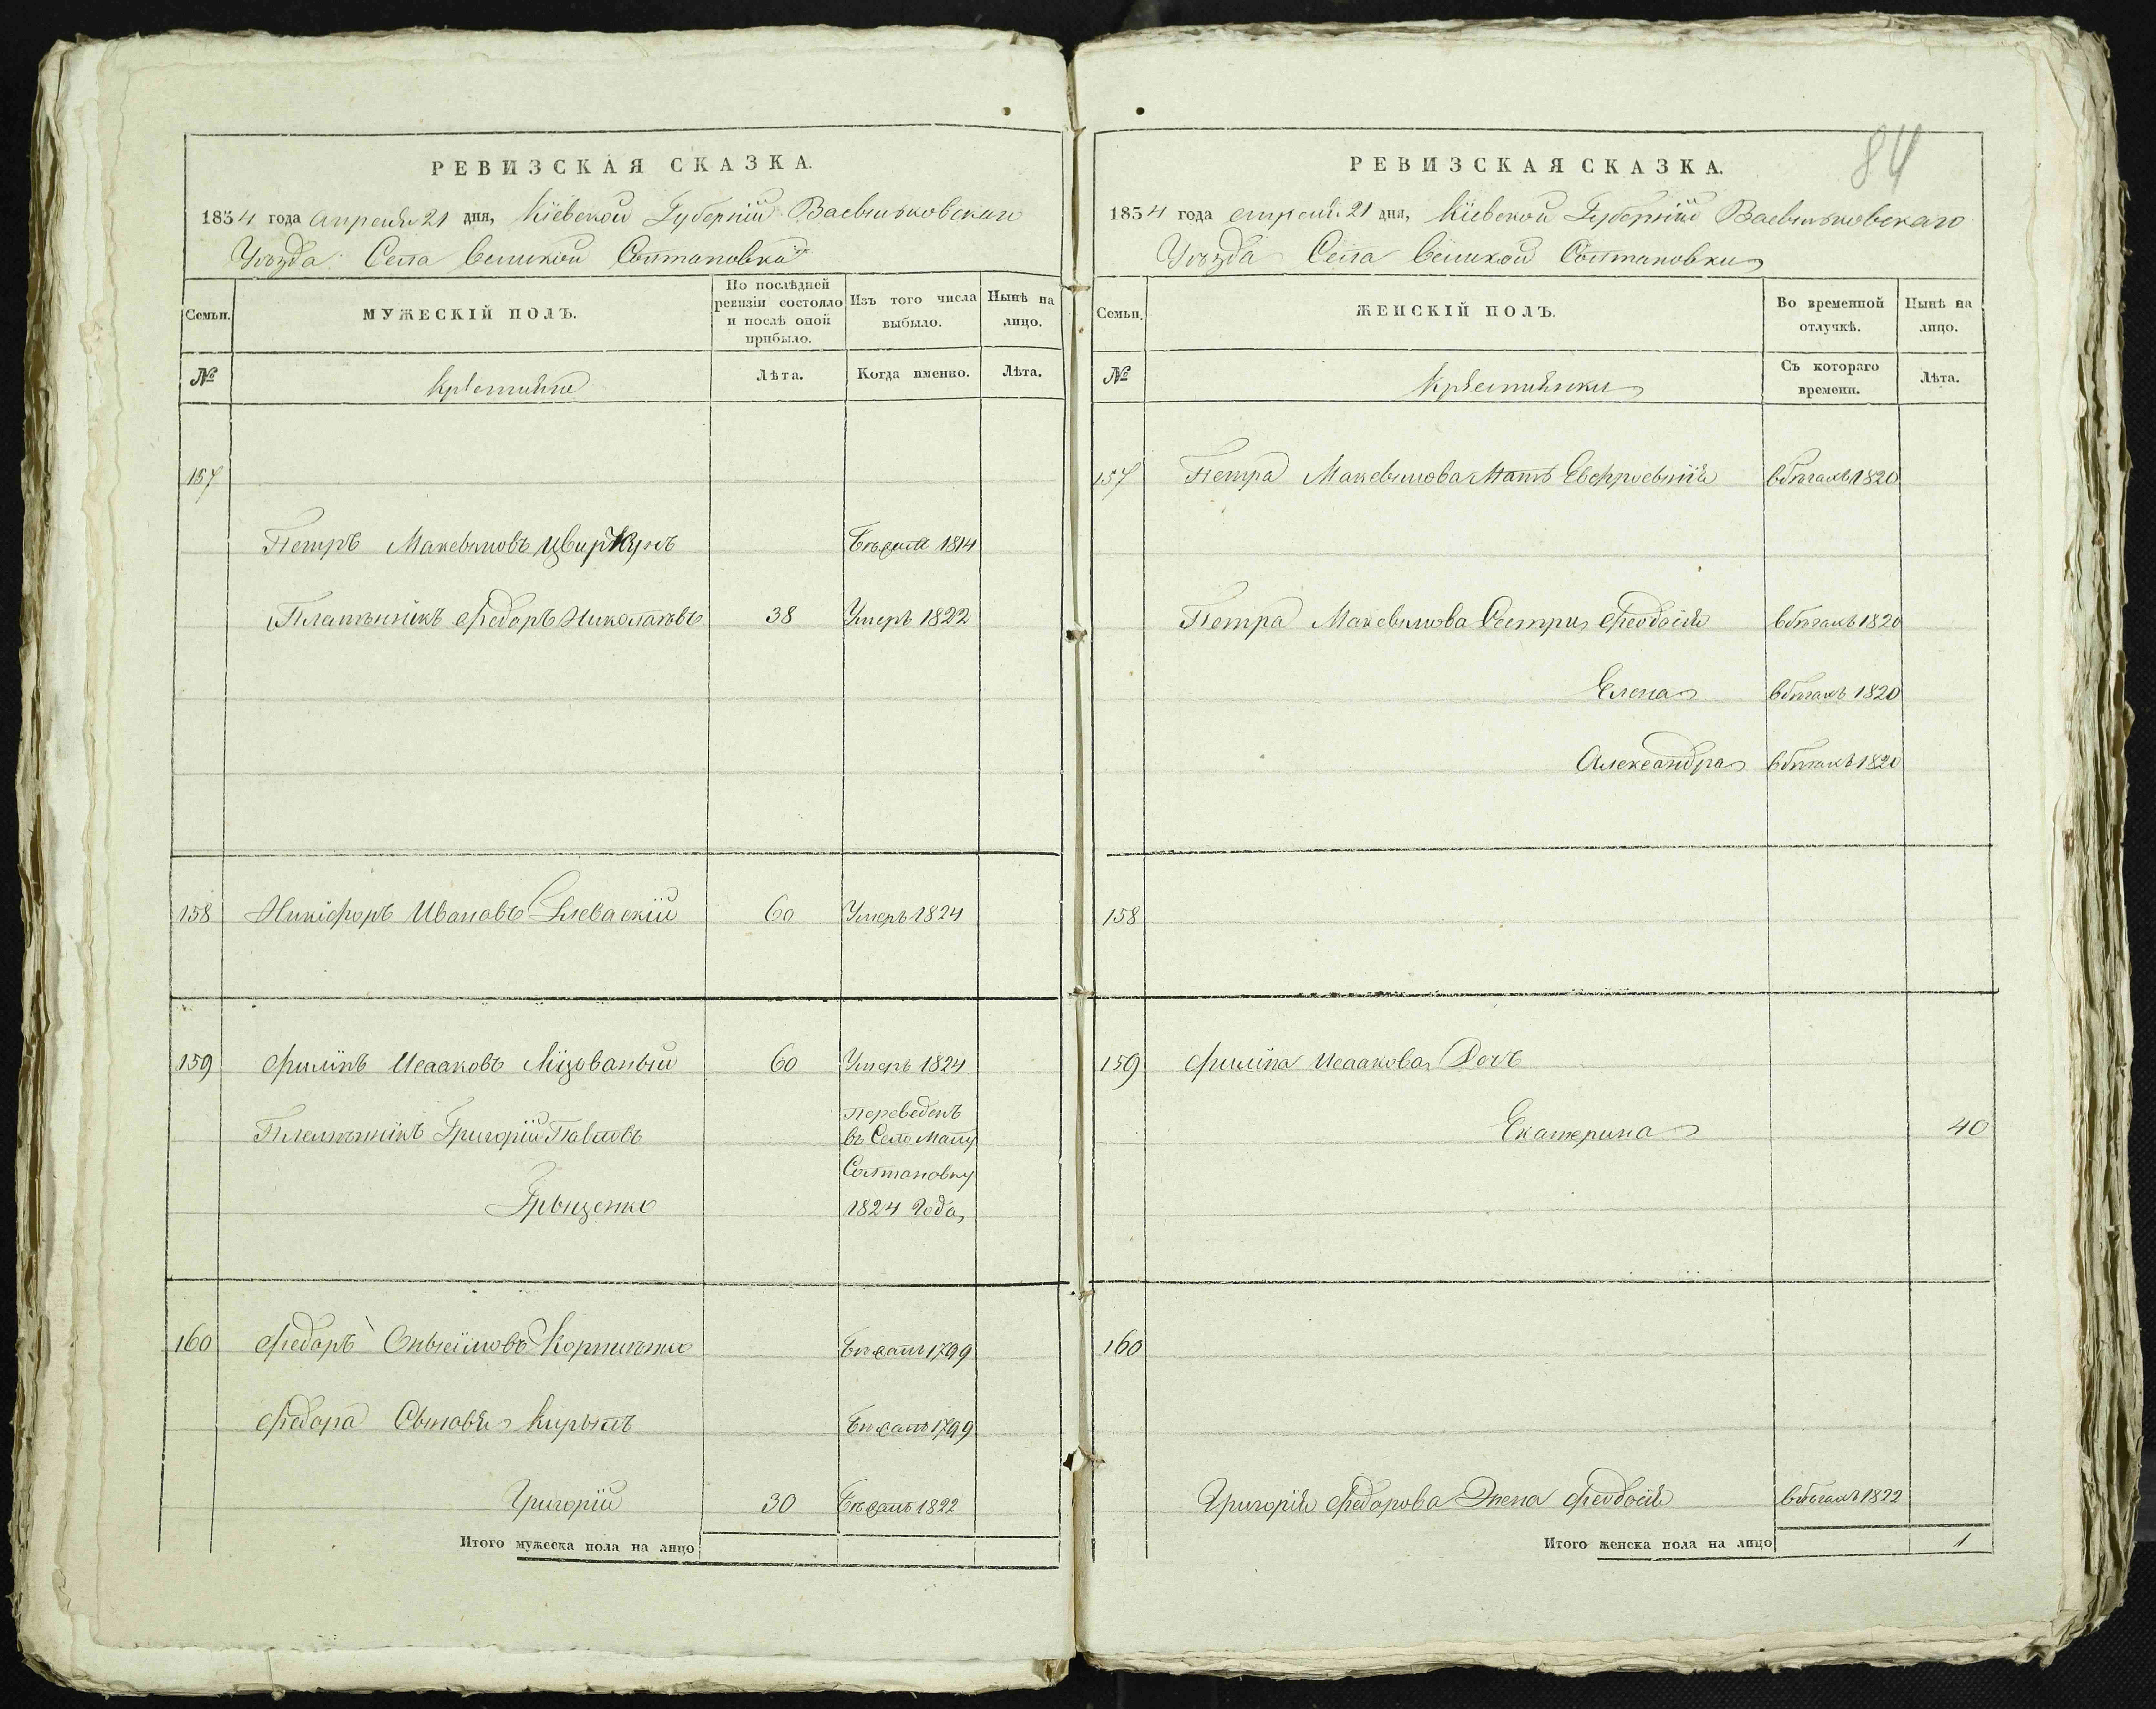 РЕВИЗСКАЯ СКАЗКА.
1834 года апреля 21 дня, Кіевской Губерніи Васильковскаго
Уѣзда Села Великой Солтановки
Семьи.
МУЖЕСКІЙ ПОЛЪ.
По послѣдней ревизіи состояло и послѣ оной прибыло.
Изъ того числа выбыло.
Нынѣ на лицо.
№
Крестьяне
Лѣта.
Когда именно.
Лѣта.
157
Петръ Максимовъ Цвиркунъ Бѣжалъ 1814
Племѣнникъ Федоръ Николаевъ 38 Умеръ 1822
158 Никифоръ Ивановъ 60 Умеръ 1824
159 Филипъ Исааковъ 60 Умеръ 1824
Племѣнникъ Григорій Павловъ
переведенъ
въ Село Малу
Солтановку
Грыценко 1824 года
160 Федоръ Бѣжалъ 1799
Федора Сыновья Кирылъ Бѣжалъ 1799
Григорій 30 Бѣжалъ 1822
Итого мужеска пола на лицо
84
РЕВИЗСКАЯ СКАЗКА.
1834 года апреля 21 дня, Кіевской Губерніи Васильковскаго
Уѣзда Села Великой Солтановки
Семьи.
ЖЕНСКІЙ ПОЛЪ.
Во временной отлучкѣ.
Нынѣ на лицо.
№
Крестьянки
Съ котораго времени.
Лѣта.
157 Петра Максимова Мать в бѣгахъ 1820
Петра Максимова Сестры Феодосія в бѣгахъ 1820
Елена в бѣгахъ 1820
Александра в бѣгахъ 1820
158
159 Филипа Исаакова Дочь
Екатерина 40
160
Григорія Федорова Жена Феодосія в бѣгахъ 1822
Итого женска пола на лицо 1